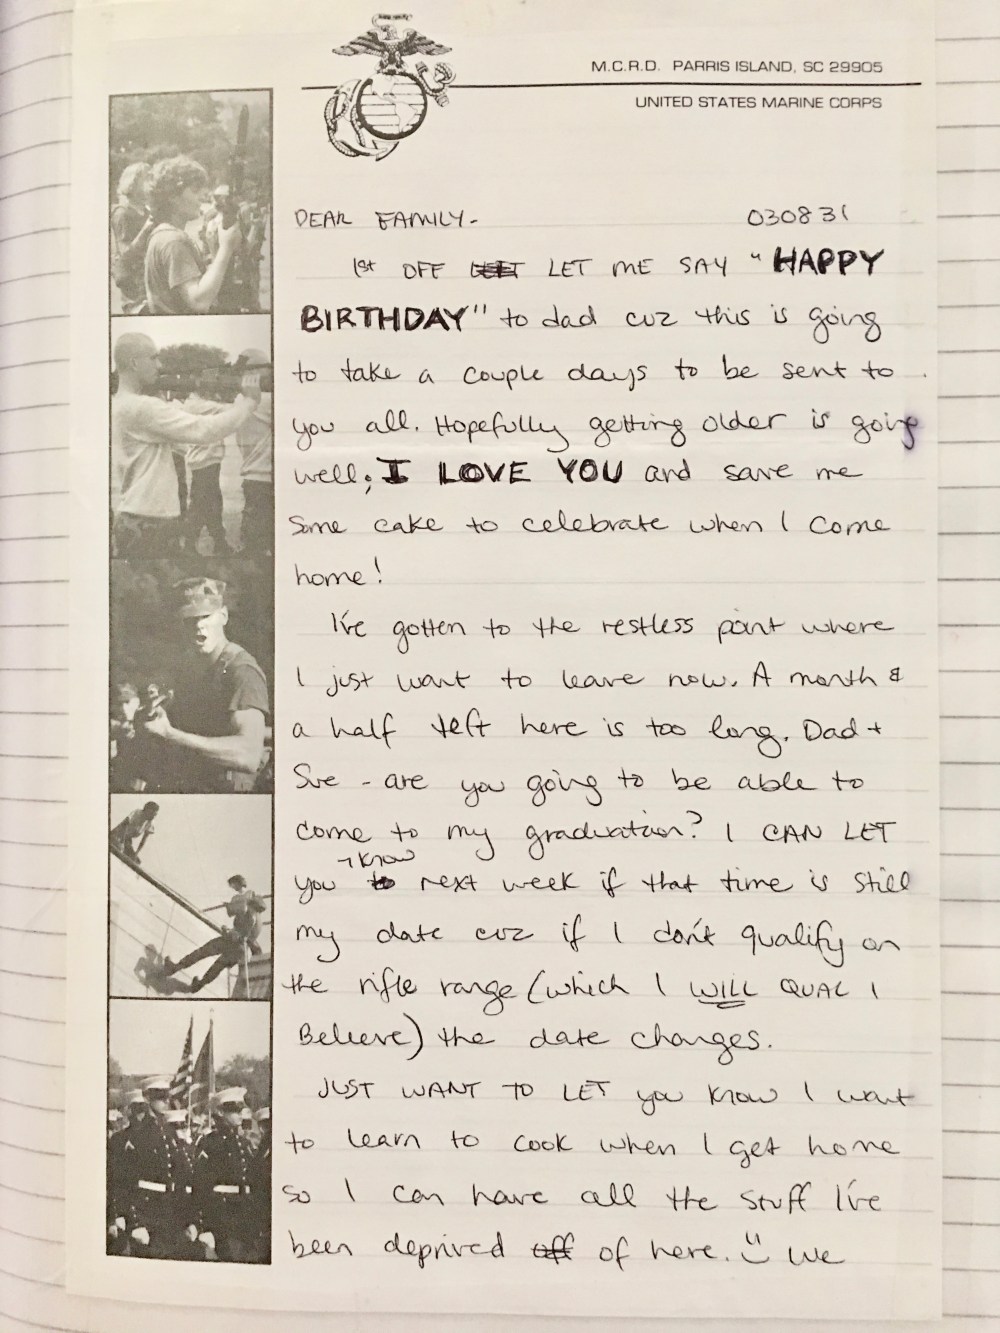 M.C.R.D. PARRIS ISLAND, SC 29905
UNITED STATES MARINE CORPS
DEAR FAMILY- 030831
1st OFF LET LET ME SAY "HAPPY
BIRTHDAY" to dad cuz this is going
to take a couple days to be sent to
you all. Hopefully getting older is going
well; I LOVE YOU and save me
some cake to celebrate when I come
home!
I've gotten to the restless point where
I just want to leave now. A month &
a half left here is too long. Dad +
Sue - are you going to be able to
come to my graduation? I CAN LET
you know next week if that time is still
my date cuz if I don't qualify on
the rifle range (which I WILL QUAL I
Believe) the date changes.
JUST WANT TO LET you know I want
to learn to cook when I get home
so I can have all the stuff I've
been deprived off of here. We